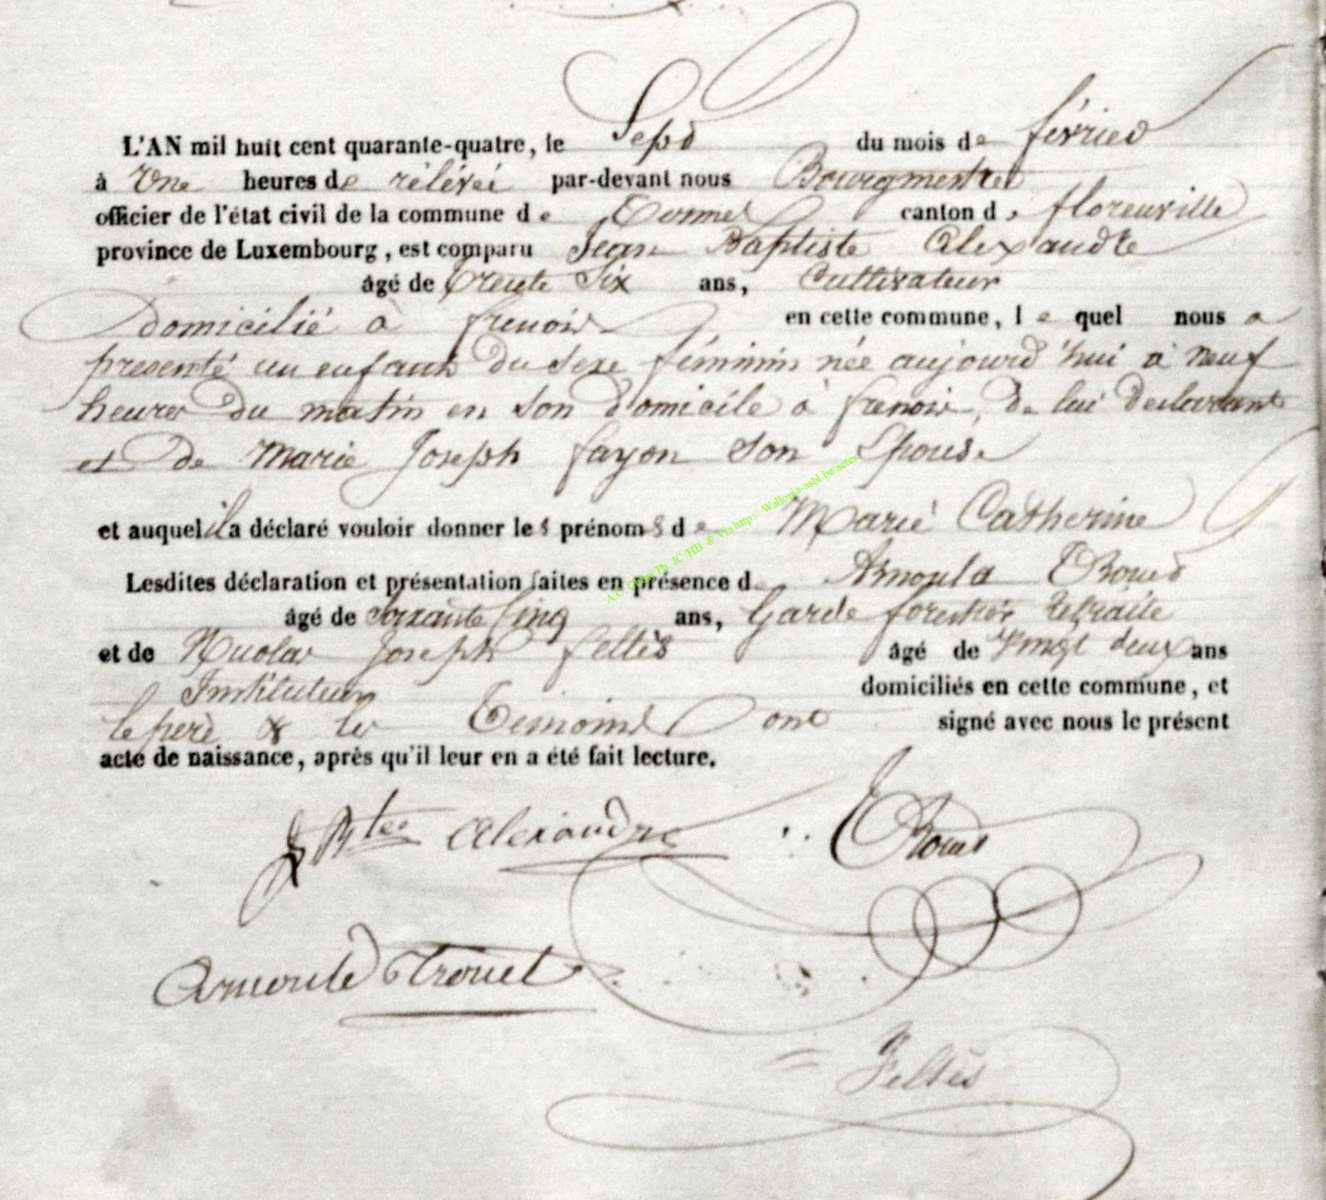 L'AN mil huit cent quarante-quatre, le Sept du mois de février
à Une heures de rélévéé par-devant nous Bourgmestre
officier de l'état civil de la commune de Termes canton de florenville
province de Luxembourg, est comparu Jean Baptiste Alexandre
âgé de trente Six ans, Cultivateur
Domicilié à frenois en cette commune, lequel nous a
presenté un enfant du sexe féminin née aujourd'hui à neuf
heures Du matin en son domicile à frenois, de lui declarant
et De Marie Joseph fayon son Epouse
et auquel il a déclaré vouloir donner les prénoms de Marie Catherine
Lesdites déclaration et présentation faites en présence de Arnould Trouet
âgé de soixante Cinq ans, Garde forestier retraite
et de Nicolas Joseph feltés âgé de Vingt deux ans
Instituteur domiciliés en cette commune, et
le pere & les Temoins ont signé avec nous le présent
acte de naissance, après qu'il leur en a été fait lecture.
J Btes Alexandre
Arnould Trouet
Feltés